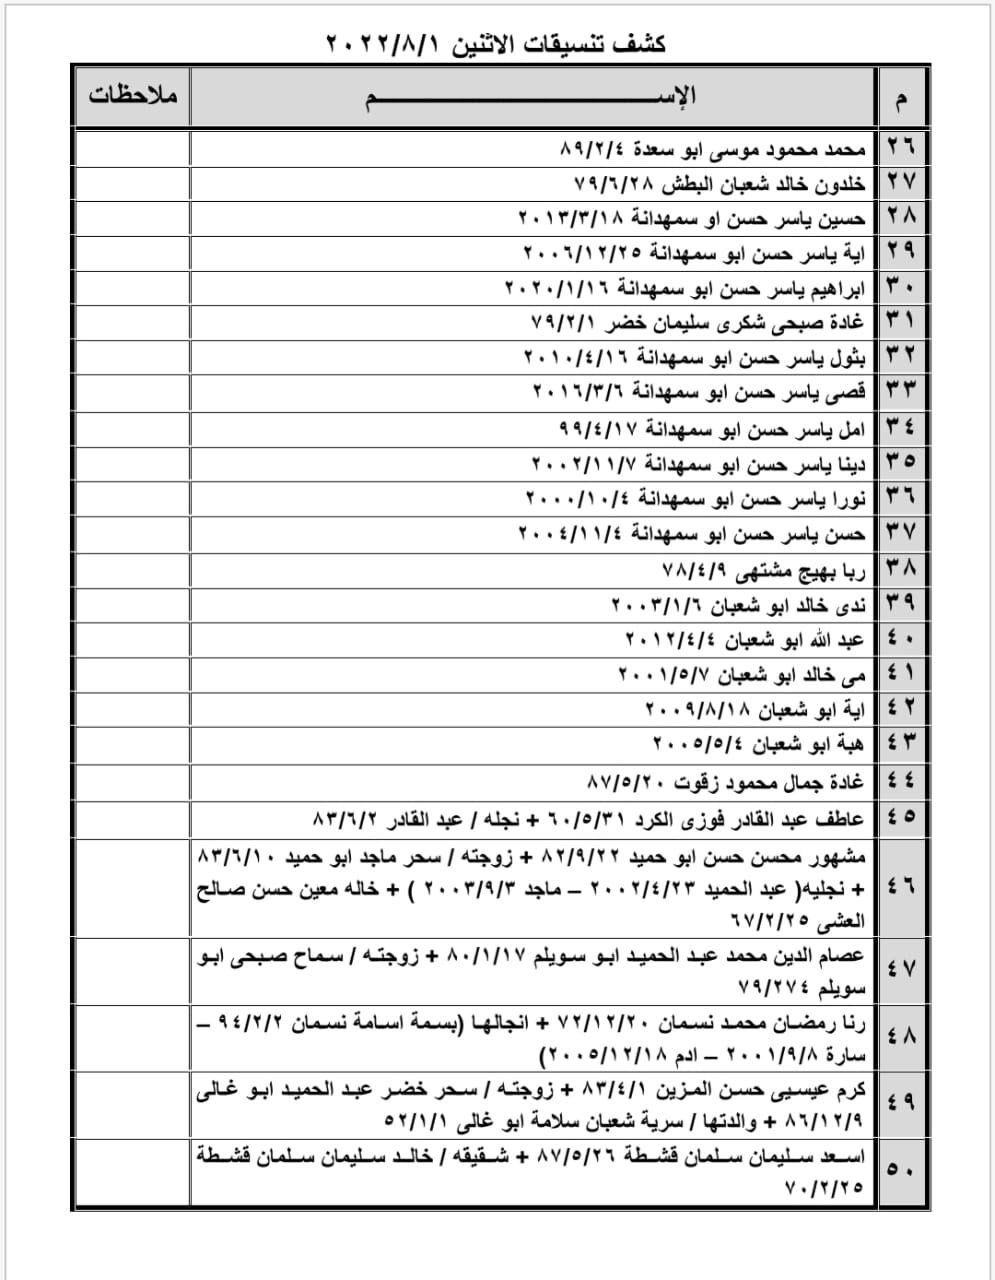 كشف تنسيقات الاثنين ٢٠٢٢/٨/١
م الإســـــــــــــــــــــــم ملاحظات
٢٦ محمد محمود موسى ابو سعدة ٨٩/٢/٤
٢٧ خلدون خالد شعبان البطش ٧٩/٦/٢٨
٢٨ حسين ياسر حسن او سمهدانة ٢٠١٣/٣/١٨
٢٩ اية ياسر حسن ابو سمهدانة ٢٠٠٦/١٢/٢٥
٣٠ ابراهيم ياسر حسن ابو سمهدانة ٢٠٢٠/١/١٦
٣١ غادة صبحى شكرى سليمان خضر ٧٩/٢/١
٣٢ بثول ياسر حسن ابو سمهدانة ٢٠١٠/٤/١٦
٣٣ قصى ياسر حسن ابو سمهدانة ٢٠١٦/٣/٦
٣٤ امل ياسر حسن ابو سمهدانة ٩٩/٤/١٧
٣٥ دينا ياسر حسن ابو سمهدانة ٢٠٠٢/١١/٧
٣٦ نورا ياسر حسن ابو سمهدانة ٢٠٠٠/١٠/٤
٣٧ حسن ياسر حسن ابو سمهدانة ٢٠٠٤/١١/٤
٣٨ ربا بهيج مشتهى ٧٨/٤/٩
٣٩ ندى خالد ابو شعبان ٢٠٠٣/١/٦
٤٠ عبد الله ابو شعبان ٢٠١٢/٤/٤
٤١ مى خالد ابو شعبان ٢٠٠١/٥/٧
٤٢ اية ابو شعبان ٢٠٠٩/٨/١٨
٤٣ هبة ابو شعبان ٢٠٠٥/٥/٤
٤٤ غادة جمال محمود زقوت ٨٧/٥/٢٠
٤٥ عاطف عبد القادر فوزى الكرد ٦٠/٥/٣١ + نجله / عبد القادر ٨٣/٦/٢
مشهور محسن حسن ابو حميد ٨٢/٩/٢٢ + زوجته / سحر ماجد ابو حميد ٨٣/٦/١٠
٤٦ + نجليه( عبد الحميد ٢٠٠٢/٤/٢٣ – ماجد ٢٠٠٣/٩/٣ ) + خاله معين حسن صالح
العشى ٦٧/٢/٢٥
٤٧ عصام الدين محمد عبد الحميد ابو سويلم ٨٠/١/١٧ + زوجته / سماح صبحى ابو
سويلم ٧٩/٢٧٤
٤٨ رنا رمضان محمد نسمان ٧٢/١٢/٢٠ + انجالها (بسمة اسامة نسمان ٩٤/٢/٢ –
سارة ٢٠٠١/٩/٨ – ادم ٢٠٠٥/١٢/١٨)
٤٩ كرم عيسىى حسن المزين ٨٣/٤/١ + زوجته / سحر خضر عبد الحميد ابو غالى
٨٦/١٢/٩ + والدتها / سرية شعبان سلامة ابو غالى ٥٢/١/١
٥٠ اسعد سليمان سلمان قشطة ٨٧/٥/٢٦ + شقيقه / خالد سليمان سلمان قشطة
٧٠/٢/٢٥